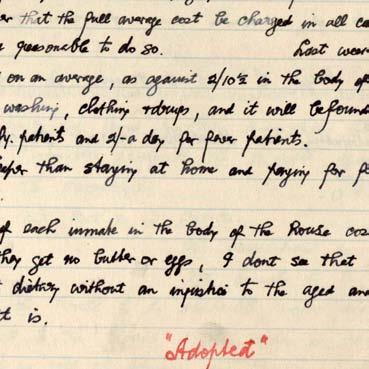 that the full average cost be charged in all ca
reasonable to do so. Last wee
on an average, as against 2/10½ in the body of
washing, clothing & drugs, and it will be found
patients and 2/- a day for fever patients.
than staying at home and paying for f
of each inmate in the body of the house co
they get no butter or eggs, I dont see that
dietary without an injustice to the aged an
t is.
"Adopted"